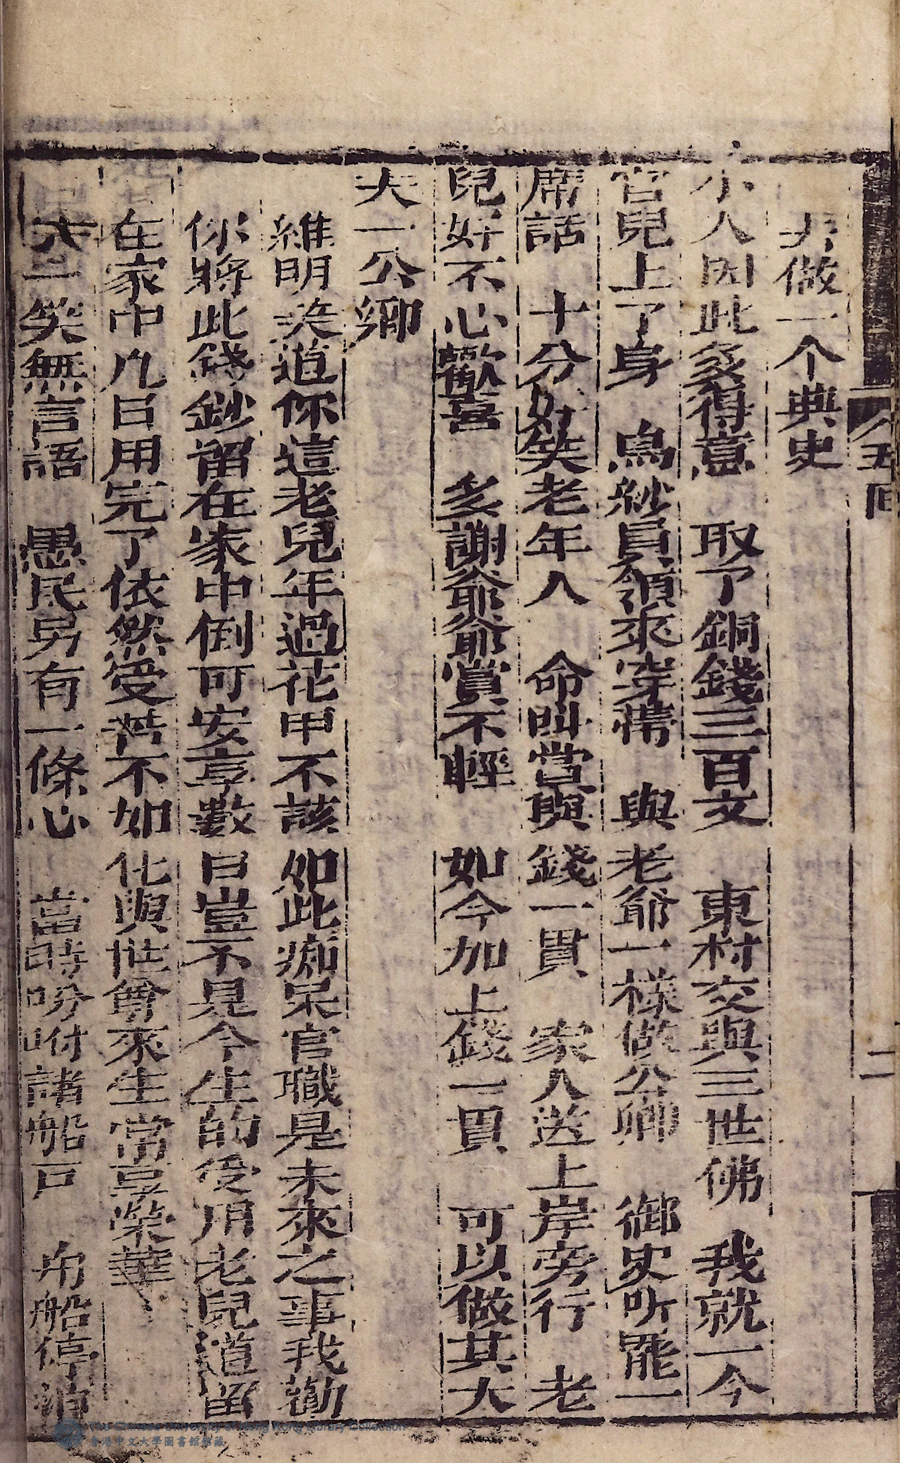 五回
二
才做一个典史
小人因此多得意　取了銅錢三百文　東村交與三世佛　我就一今
官兒上了身　烏紗員領來穿情　與老爺一樣做公卿　御史听罷一
席話　十分好笑老年人　命叫當與錢一貫　家人送上岸旁行　老
兒好不心歡喜　多謝爺爺賞不輕　如今加上錢一貫　可以做其大
大一公卿
維明笑道你這老兒年過花甲不該如此痴呆官職是未來之事我勸
你將此錢鈔留在家中倒可安享數日豈不是今生的受用老兒道留
在家中九日用完了依然受苦不如化與世尊來生常享榮華
大二笑無言語　愚民另有一條心　當時吩咐諸船戶　舟船停泊
香港中文大學圖書館館藏